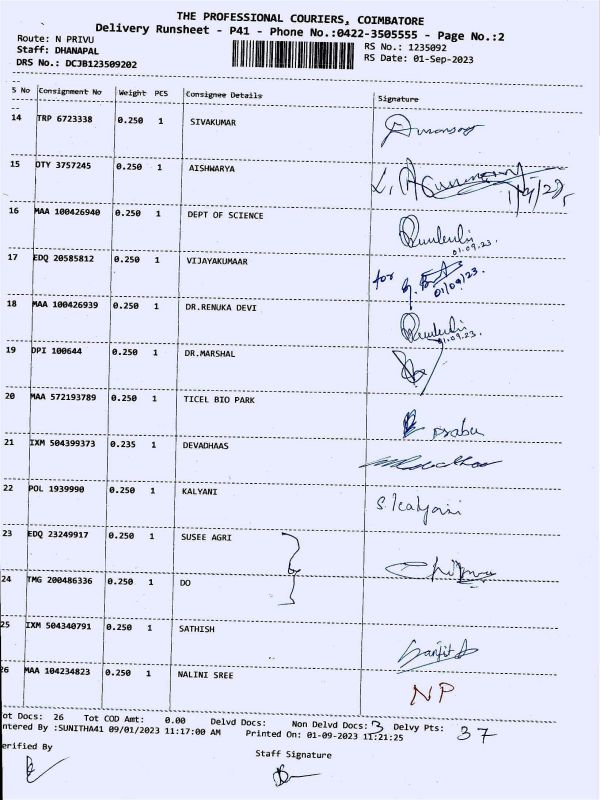 THE PROFESSIONAL COURIERS, COIMBATORE
Delivery Runsheet - P41 - Phone No.:0422-3505555 - Page No.:2
Route: N PRIVU RS No.: 1235092
Staff: DHANAPAL RS Date: 01-Sep-2023
DRS No.: DCJB123509202
S No Consignment No Weight PCS Consignee Details Signature
14 TRP 6723338 0.250 1 SIVAKUMAR
15 DTY 3757245 0.250 1 AISHWARYA
16 MAA 100426940 0.250 1 DEPT OF SCIENCE
01.09.23.
17 EDQ 20585812 0.250 1 VIJAYAKUMAAR for
01/09/23.
18 MAA 100426939 0.250 1 DR.RENUKA DEVI
01.09.23.
19 DPI 100644 0.250 1 DR.MARSHAL
20 MAA 572193789 0.250 1 TICEL BIO PARK
prabu
21 IXM 504399373 0.235 1 DEVADHAAS
22 POL 1939990 0.250 1 KALYANI S. Kalyani
23 EDQ 23249917 0.250 1 SUSEE AGRI
24 TMG 200486336 0.250 1 DO
25 IXM 504340791 0.250 1 SATHISH
26 MAA 104234823 0.250 1 NALINI SREE NP
ot Docs: 26 Tot COD Amt: 0.00 Delvd Docs: Non Delvd Docs: 3 Delvy Pts: 37
ntered By :SUNITHA41 09/01/2023 11:17:00 AM Printed On: 01-09-2023 11:21:25
erified By Staff Signature